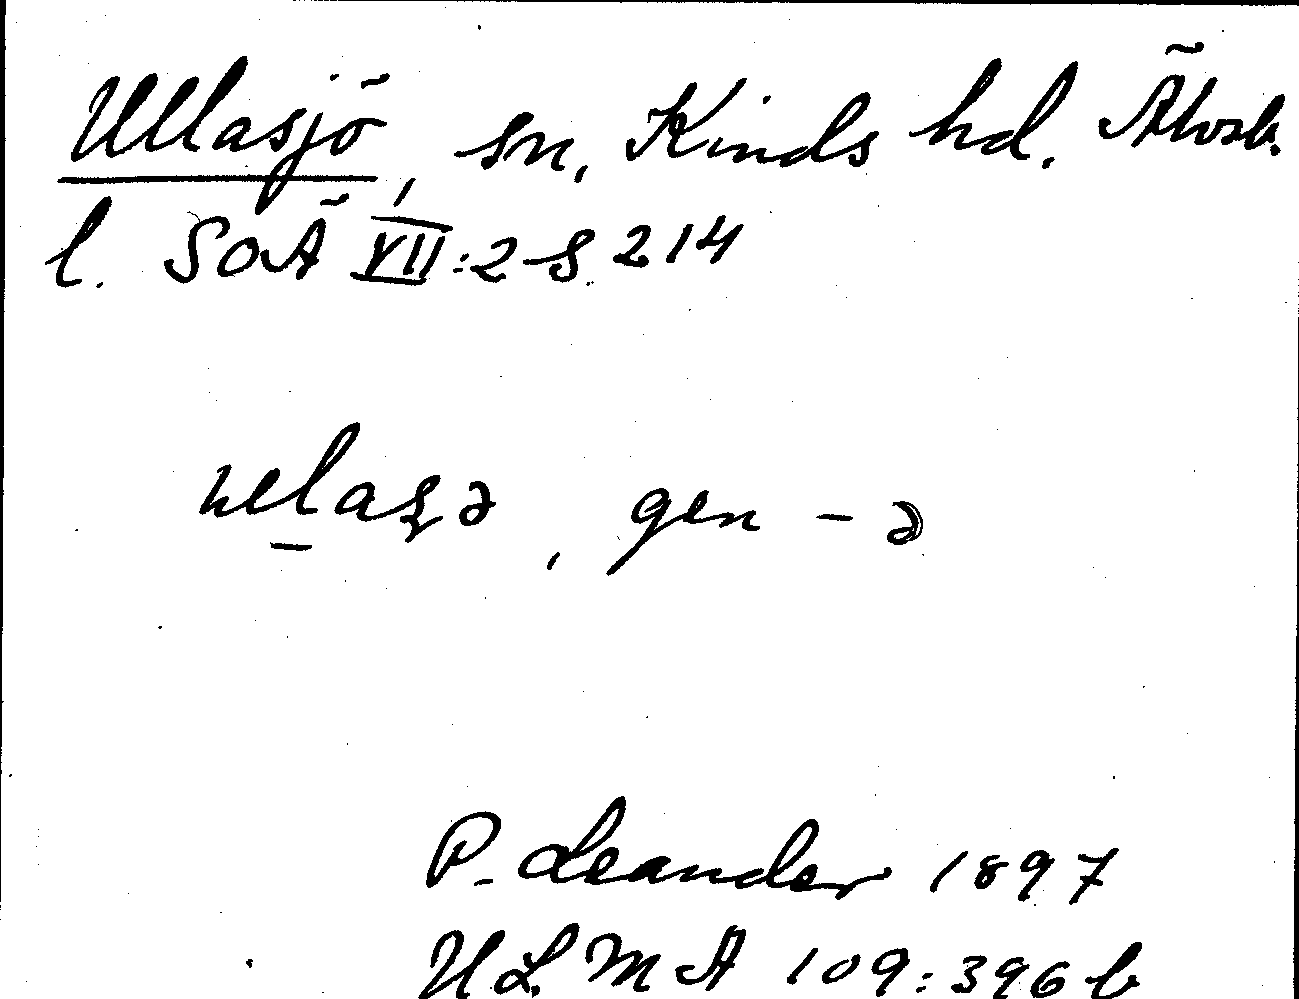 Ullasjö, sn. Kinds hd. Älvsb.
l. SOÄ VII:2 s. 214
, gen -ə
P. Leander 1897
ULMA 109:396 b